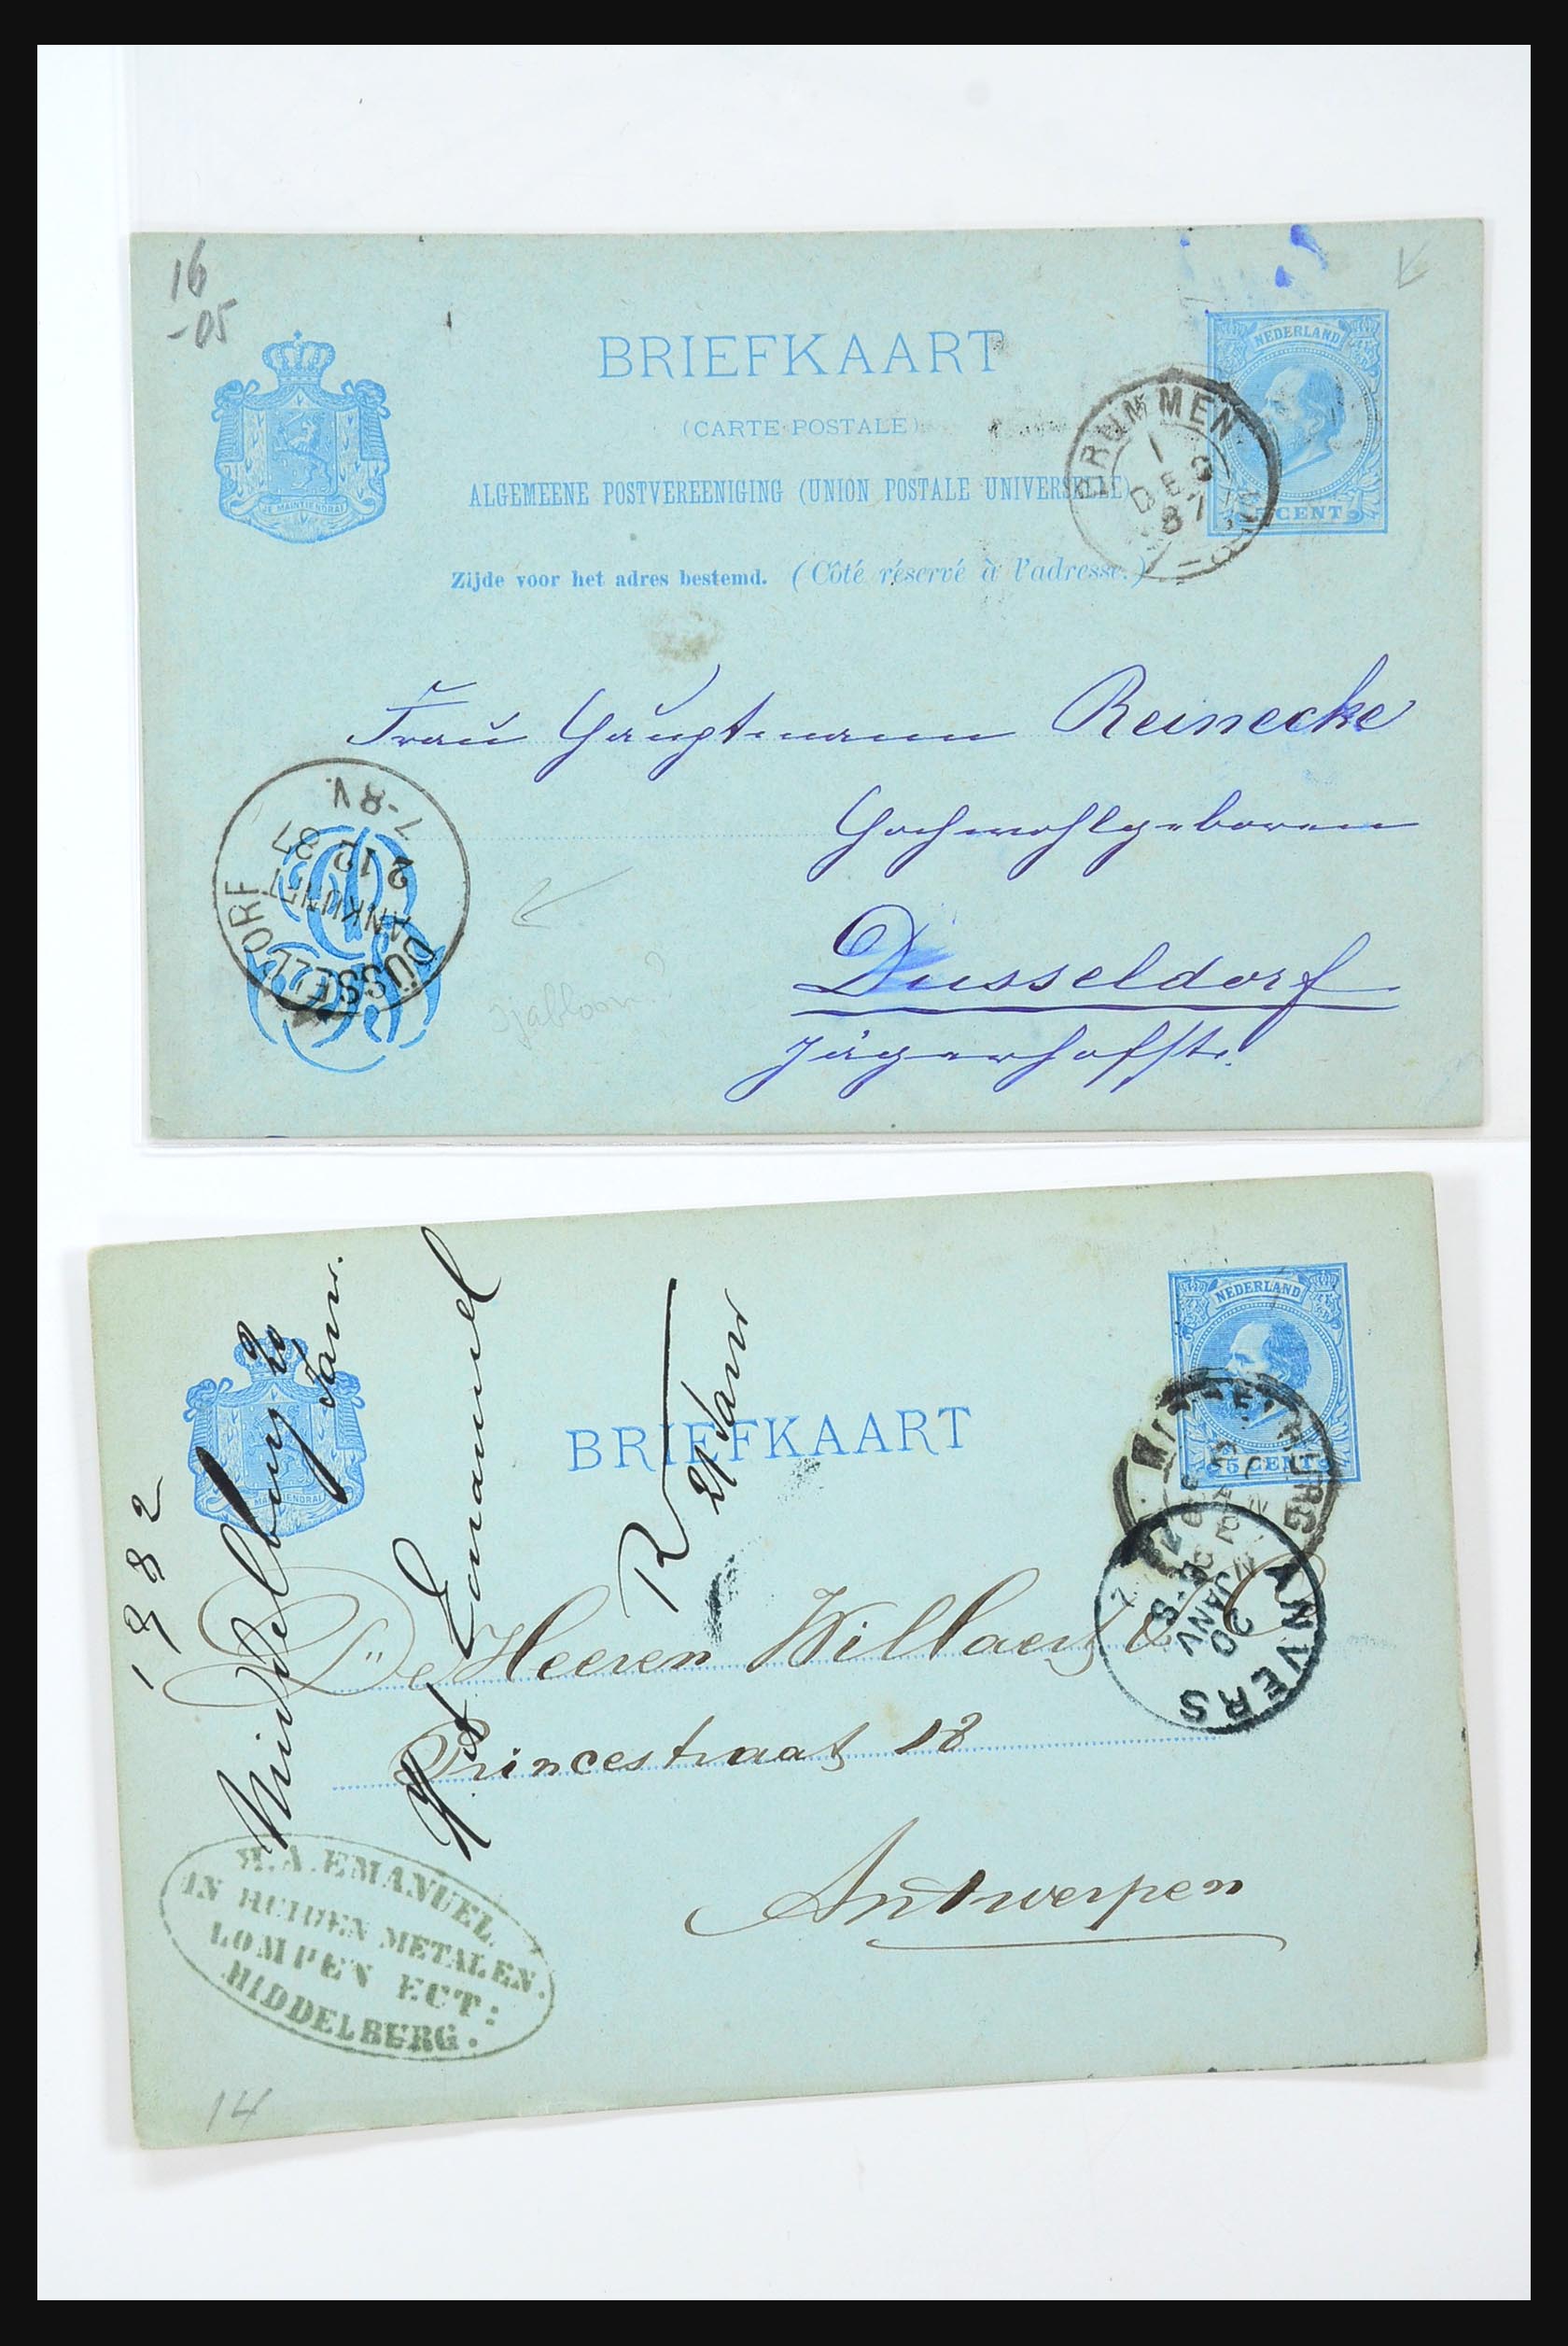 16
-05
BRIEFKAART
(CARTE POSTALE)
ALGEMEENE POSTVEREENIGING (UNION POSTALE UNIVERSELLE)
Zijde voor het adres bestemd. (Côté réservé à l'adresse.)
JE MAINTIENDRAI
NEDERLAND
5 CENT
BRUMMEN
1
DEC
87
Frau Hauptmann Reinecke
Hochwohlgeboren
Dusseldorf
Jägerhofstr.
DÜSSELDORF
ANKUNFT
2 12 87
7-8 V.
sjabloon?
BRIEFKAART
NEDERLAND
5 CENT
MIDDELBURG
ANVERS
20
JANV
Middelburg 20 Janr.
1882
Emanuel
R 21 Janr
De Heeren Willaert & Co
Princestraat 18
Antwerpen
H. A. EMANUEL.
IN HUIDEN METALEN.
LOMPEN ECT:
MIDDELBURG.
14